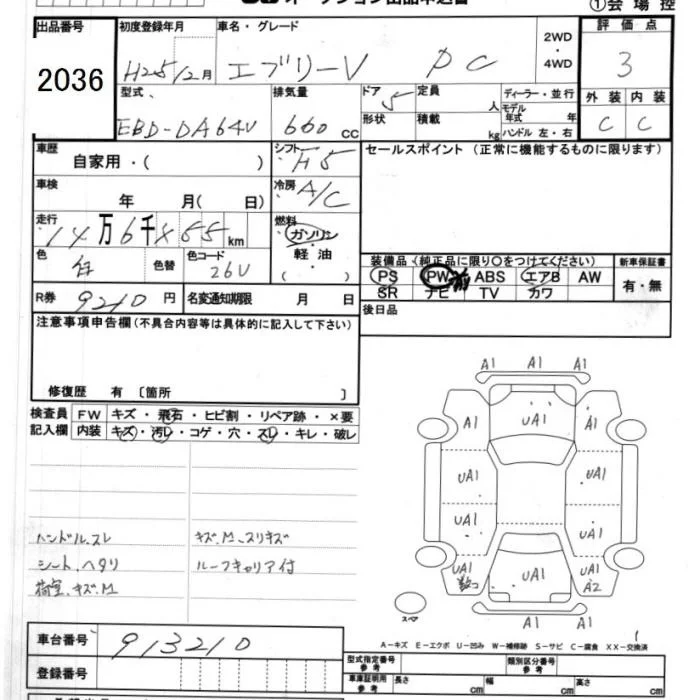 オークション出品申込書
①会場控
出品番号
2036
初度登録年月
H25/2月
車名・グレード
エブリーV PC
2WD
・
4WD
評価点
3
型式
EBD-DA64V
排気量
660 CC
ドア 5
形状
定員 人
積載 kg
ディーラー・並行
モデル年式 年
ハンドル 左・右
外装 内装
C C
車歴
自家用・( )
シフト H5
セールスポイント (正常に機能するものに限ります)
車検
年 月( 日)
冷房 A/C
走行
14万6千 55 km
燃料
ガソリン
・
軽油
( )
色
白
色替
色コード
26U
装備品 (純正品に限り○をつけてください)
PS PW ABS エアB AW
SR ナビ TV カワ
新車保証書
有・無
R券 9210 円
名変通知期限 月 日
後日品
注意事項申告欄(不具合内容等は具体的に記入して下さい)
修復歴 有 〔箇所 〕
検査員記入欄
FW キズ・飛石・ヒビ割・リペア跡・×要
内装 キズ・汚レ・コゲ・穴・スレ・キレ・破レ
ハンドル.スレ
シート.ヘタリ
荷室.キズ.M
キズ.M.スリキズ
ルーフキャリア付
A1 A1 A1
A1 UA1 A1
UA1 UA1
UA1 UA1
UA1 数コ UA1 UA1 A2
A1 A1
スペア
A-キズ E-エクボ U-凹み W-補修跡 S-サビ C-腐食 XX-交換済
車台番号 913210
登録番号
型式指定番号
参考
類別区分番号
参考
車庫証明用
参考
長さ cm 幅 cm 高さ cm